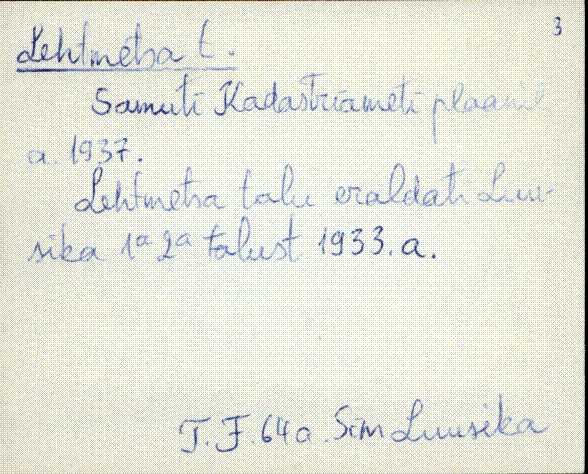 3
Lehtmetsa t.
Samuti Kadastriameti plaanil
a. 1937.
Lehtmetsa talu eraldati Luu-
sika 1a 2a talust 1933. a.
T. F. 64a. Sim Luusika